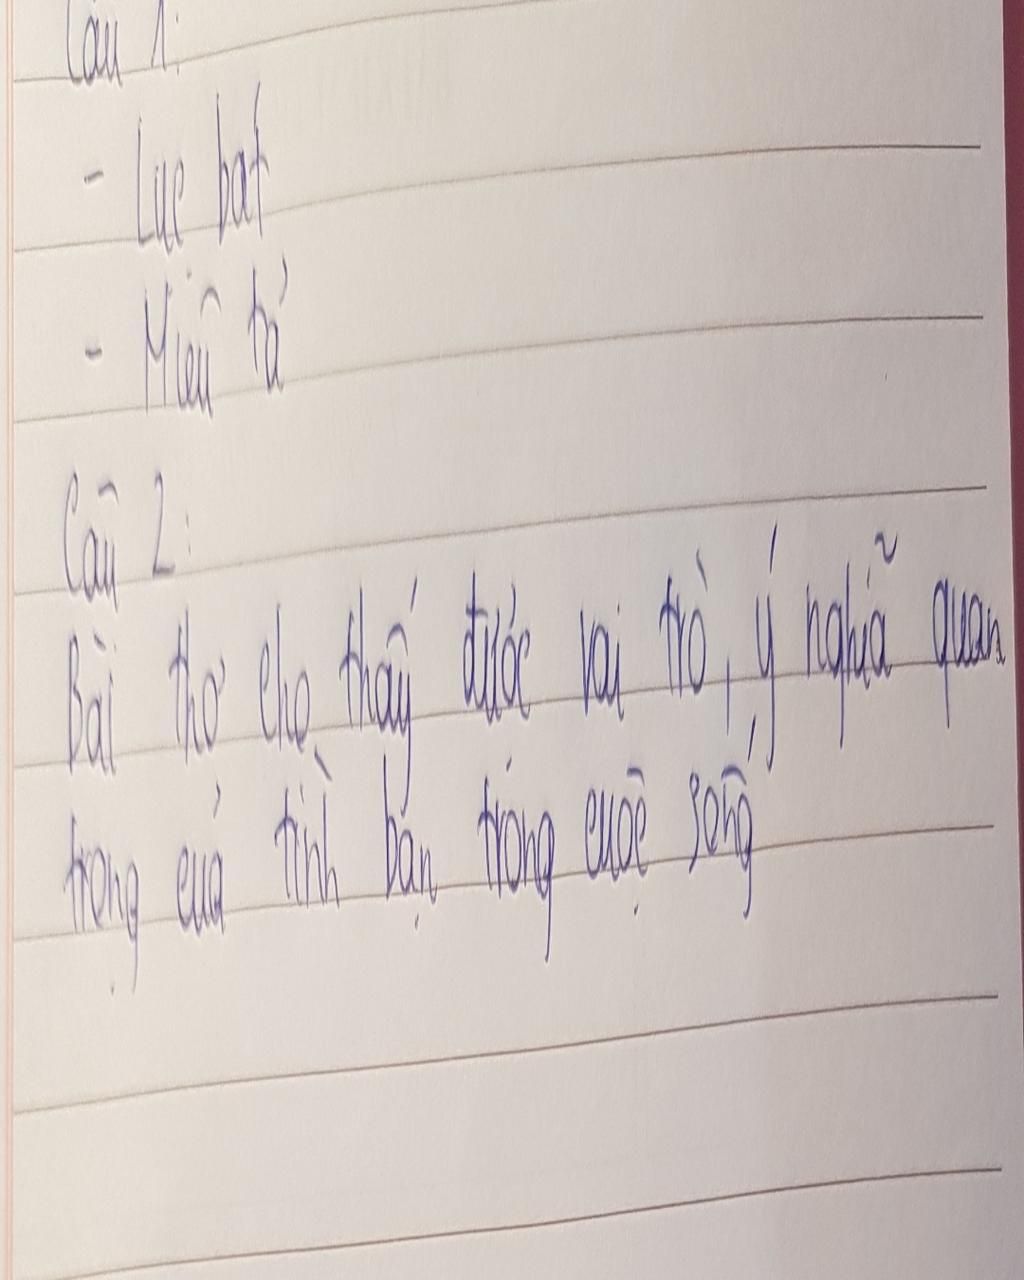 Câu 1:
- Lục bát
- Miêu tả
Câu 2:
Bài thơ cho thấy được vai trò, ý nghĩa quan
trọng của tình bạn trong cuộc sống